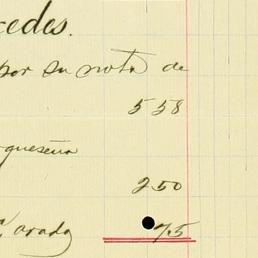 cedes.
por su nota de
558
queseña
250
75